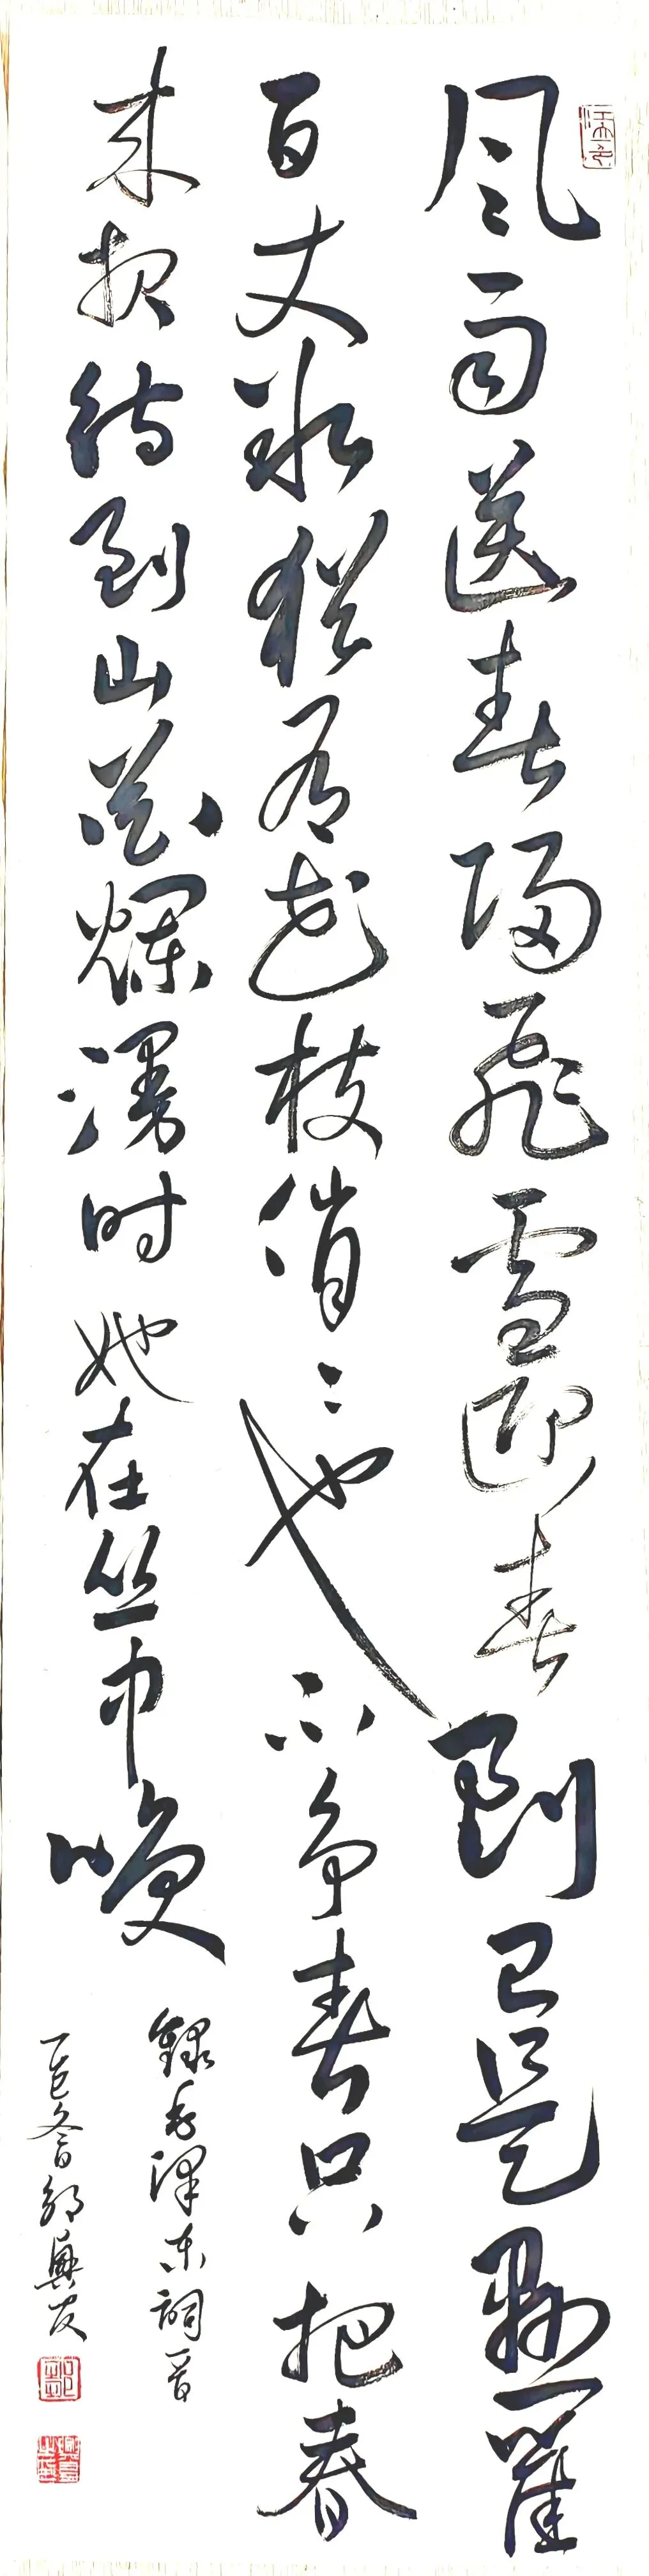 风雨送春归飛雪迎春到已是悬崖
百丈冰猶有花枝俏俏也不争春只把春
来报待到山花爛漫时她在丛中
錄毛泽东詞一首
乙巳冬日興友